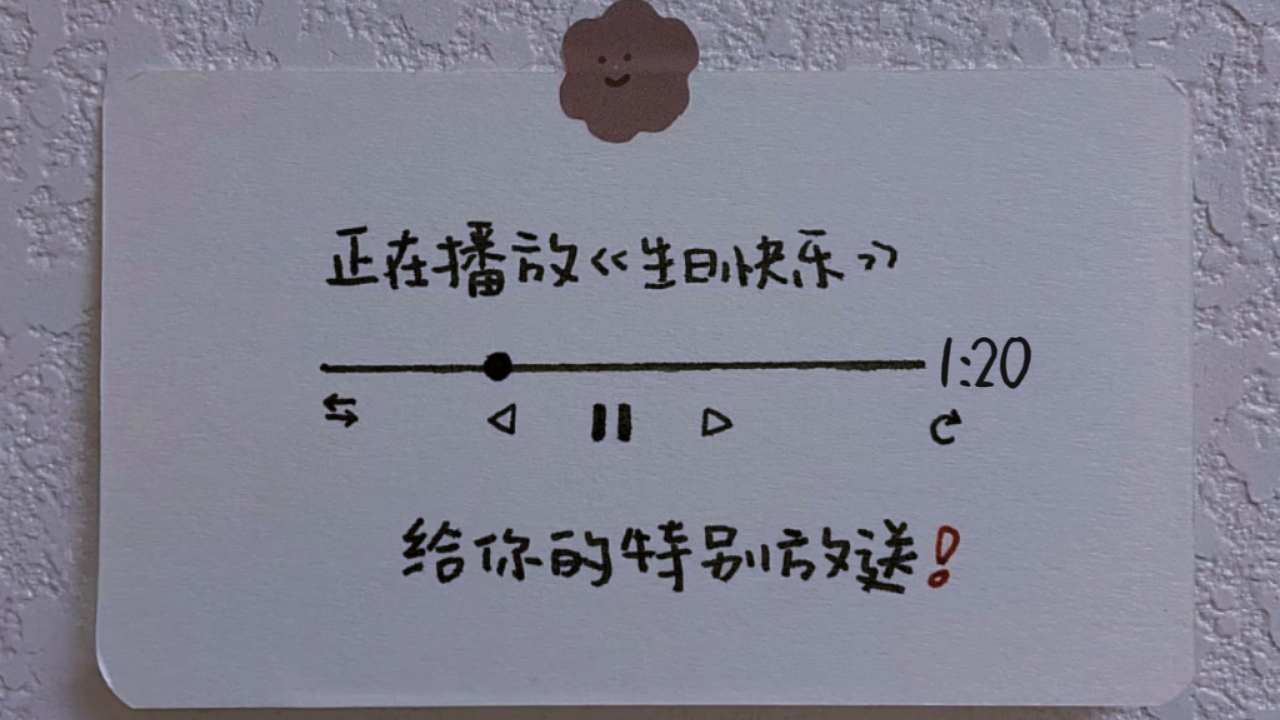 正在播放《生日快乐》
1:20
给你的特别放送!